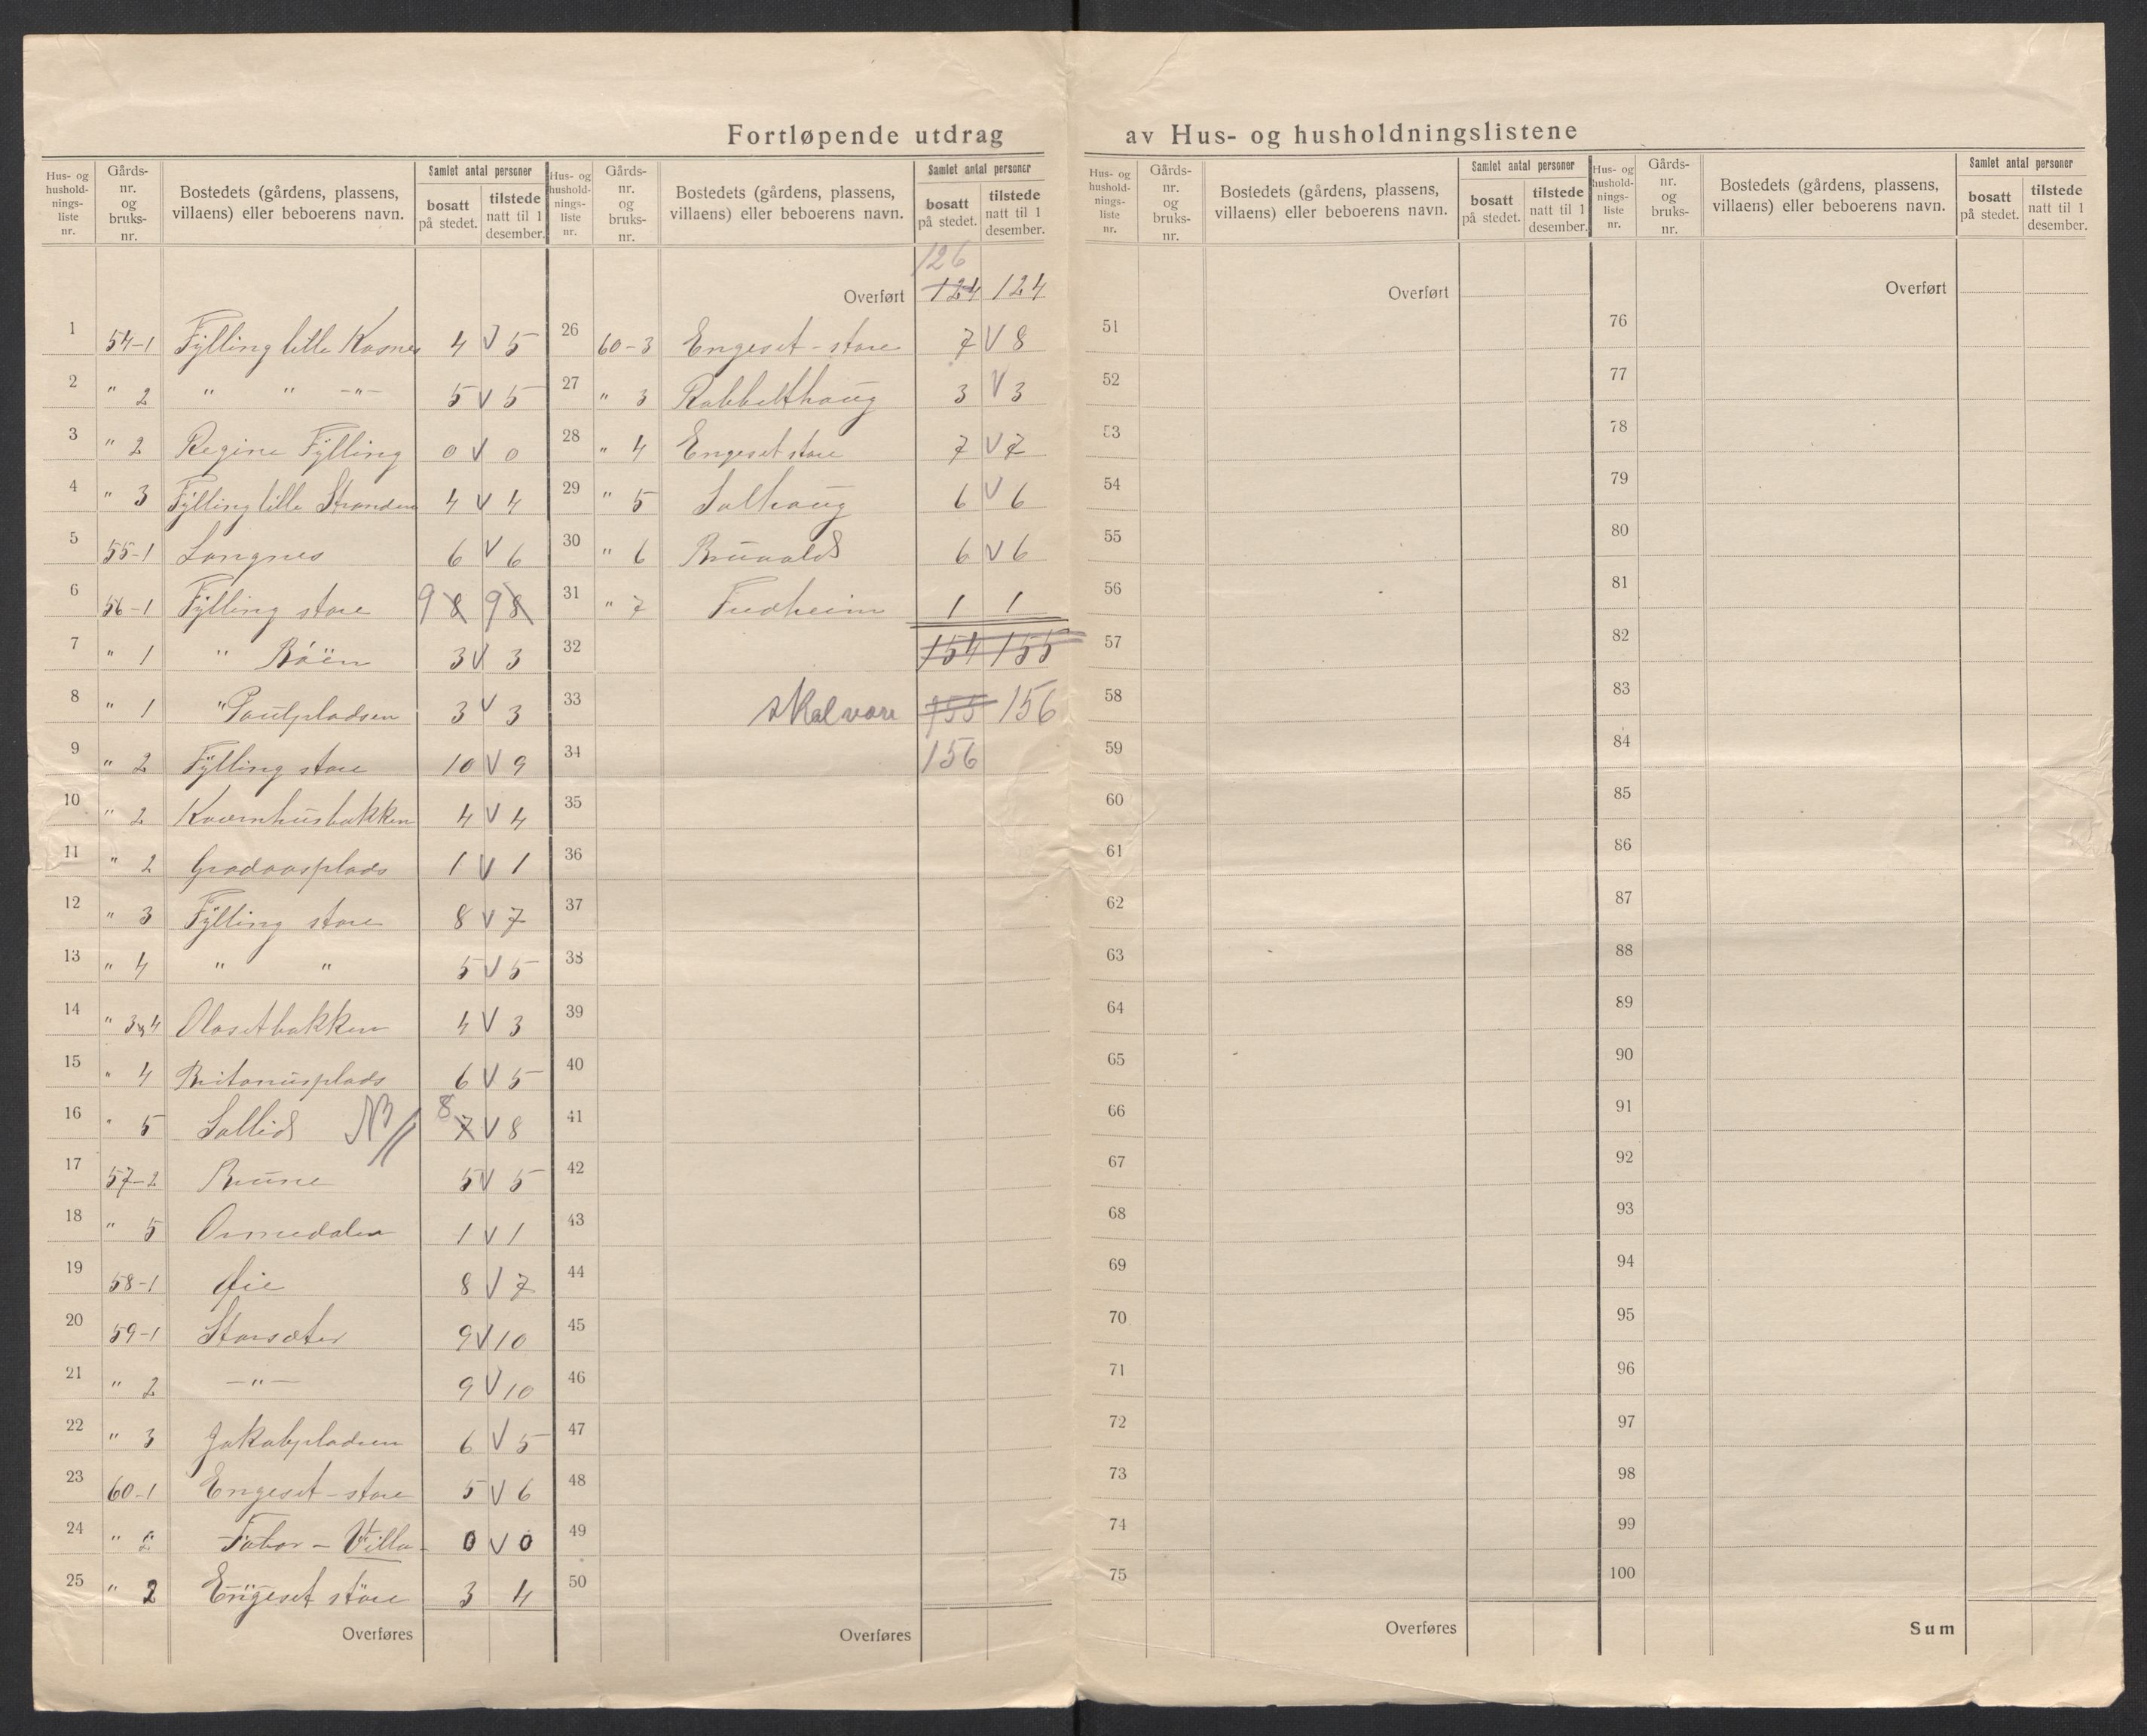 Fortløpende utdrag av Hus- og husholdningslistene
Hus- og husholdningsliste nr. Gårds-nr. og bruks-nr. Bostedets (gårdens, plassens, villaens) eller beboerens navn. Samlet antal personer bosatt på stedet. tilstede natt til 1 desember.
1 54-1 Fylling lille Kasnes 4 V 5
2 " 2 " " -"- 5 V 5
3 " 2 Regine Fylling 0 V 0
4 " 3 Fylling lille Stranden 4 V 4
5 55-1 Langnes 6 V 6
6 56-1 Fylling store 9 8 9 8
7 " 1 " Böen 3 V 3
8 " 1 " Paulpladsen 3 V 3
9 " 2 Fylling store 10 V 9
10 " 2 Kvernhusbakken 4 V 4
11 " 2 Gradaasplads 1 V 1
12 " 3 Fylling store 8 V 7
13 " 4 " " 5 V 5
14 " 3 og 4 Olasetbakken 4 V 3
15 " 4 Britanusplads 6 V 5
16 " 5 Sollid NB 8 7 V 8
17 57-2 Brune 5 V 5
18 " 5 Ormedalen 1 V 1
19 58-1 Øie 8 V 7
20 59-1 Storsæter 9 V 10
21 " 2 -"- 9 V 10
22 " 3 Jakobpladsen 6 V 5
23 60-1 Engeset-store 5 V 6
24 " 2 Tabor - Villa- 0 V 0
25 " 2 Engeset store 3 4
Overføres
Hus- og husholdningsliste nr. Gårds-nr. og bruks-nr. Bostedets (gårdens, plassens, villaens) eller beboerens navn. Samlet antal personer bosatt på stedet. tilstede natt til 1 desember.
126
Overført 124 124
26 60-3 Engeset-store 7 V 8
27 " 3 Rabbelthaug 3 V 3
28 " 4 Engeset store 7 V 7
29 " 5 Solhaug 6 V 6
30 " 6 Bruvold 6 V 6
31 " 7 Fredheim 1 1
32 154 155
33 skal være 155 156
34 156
35
36
37
38
39
40
41
42
43
44
45
46
47
48
49
50
Overføres
Hus- og husholdnings-liste nr. Gårds-nr. og bruks-nr. Bostedets (gårdens, plassens, villaens) eller beboerens navn. Samlet antal personer bosatt på stedet. tilstede natt til 1 desember.
Overført
51
52
53
54
55
56
57
58
59
60
61
62
63
64
65
66
67
68
69
70
71
72
73
74
75
Overføres
Hus- og husholdnings-liste nr. Gårds-nr. og bruks-nr. Bostedets (gårdens, plassens, villaens) eller beboerens navn. Samlet antal personer bosatt på stedet. tilstede natt til 1 desember.
Overført
76
77
78
79
80
81
82
83
84
85
86
87
88
89
90
91
92
93
94
95
96
97
98
99
100
Sum